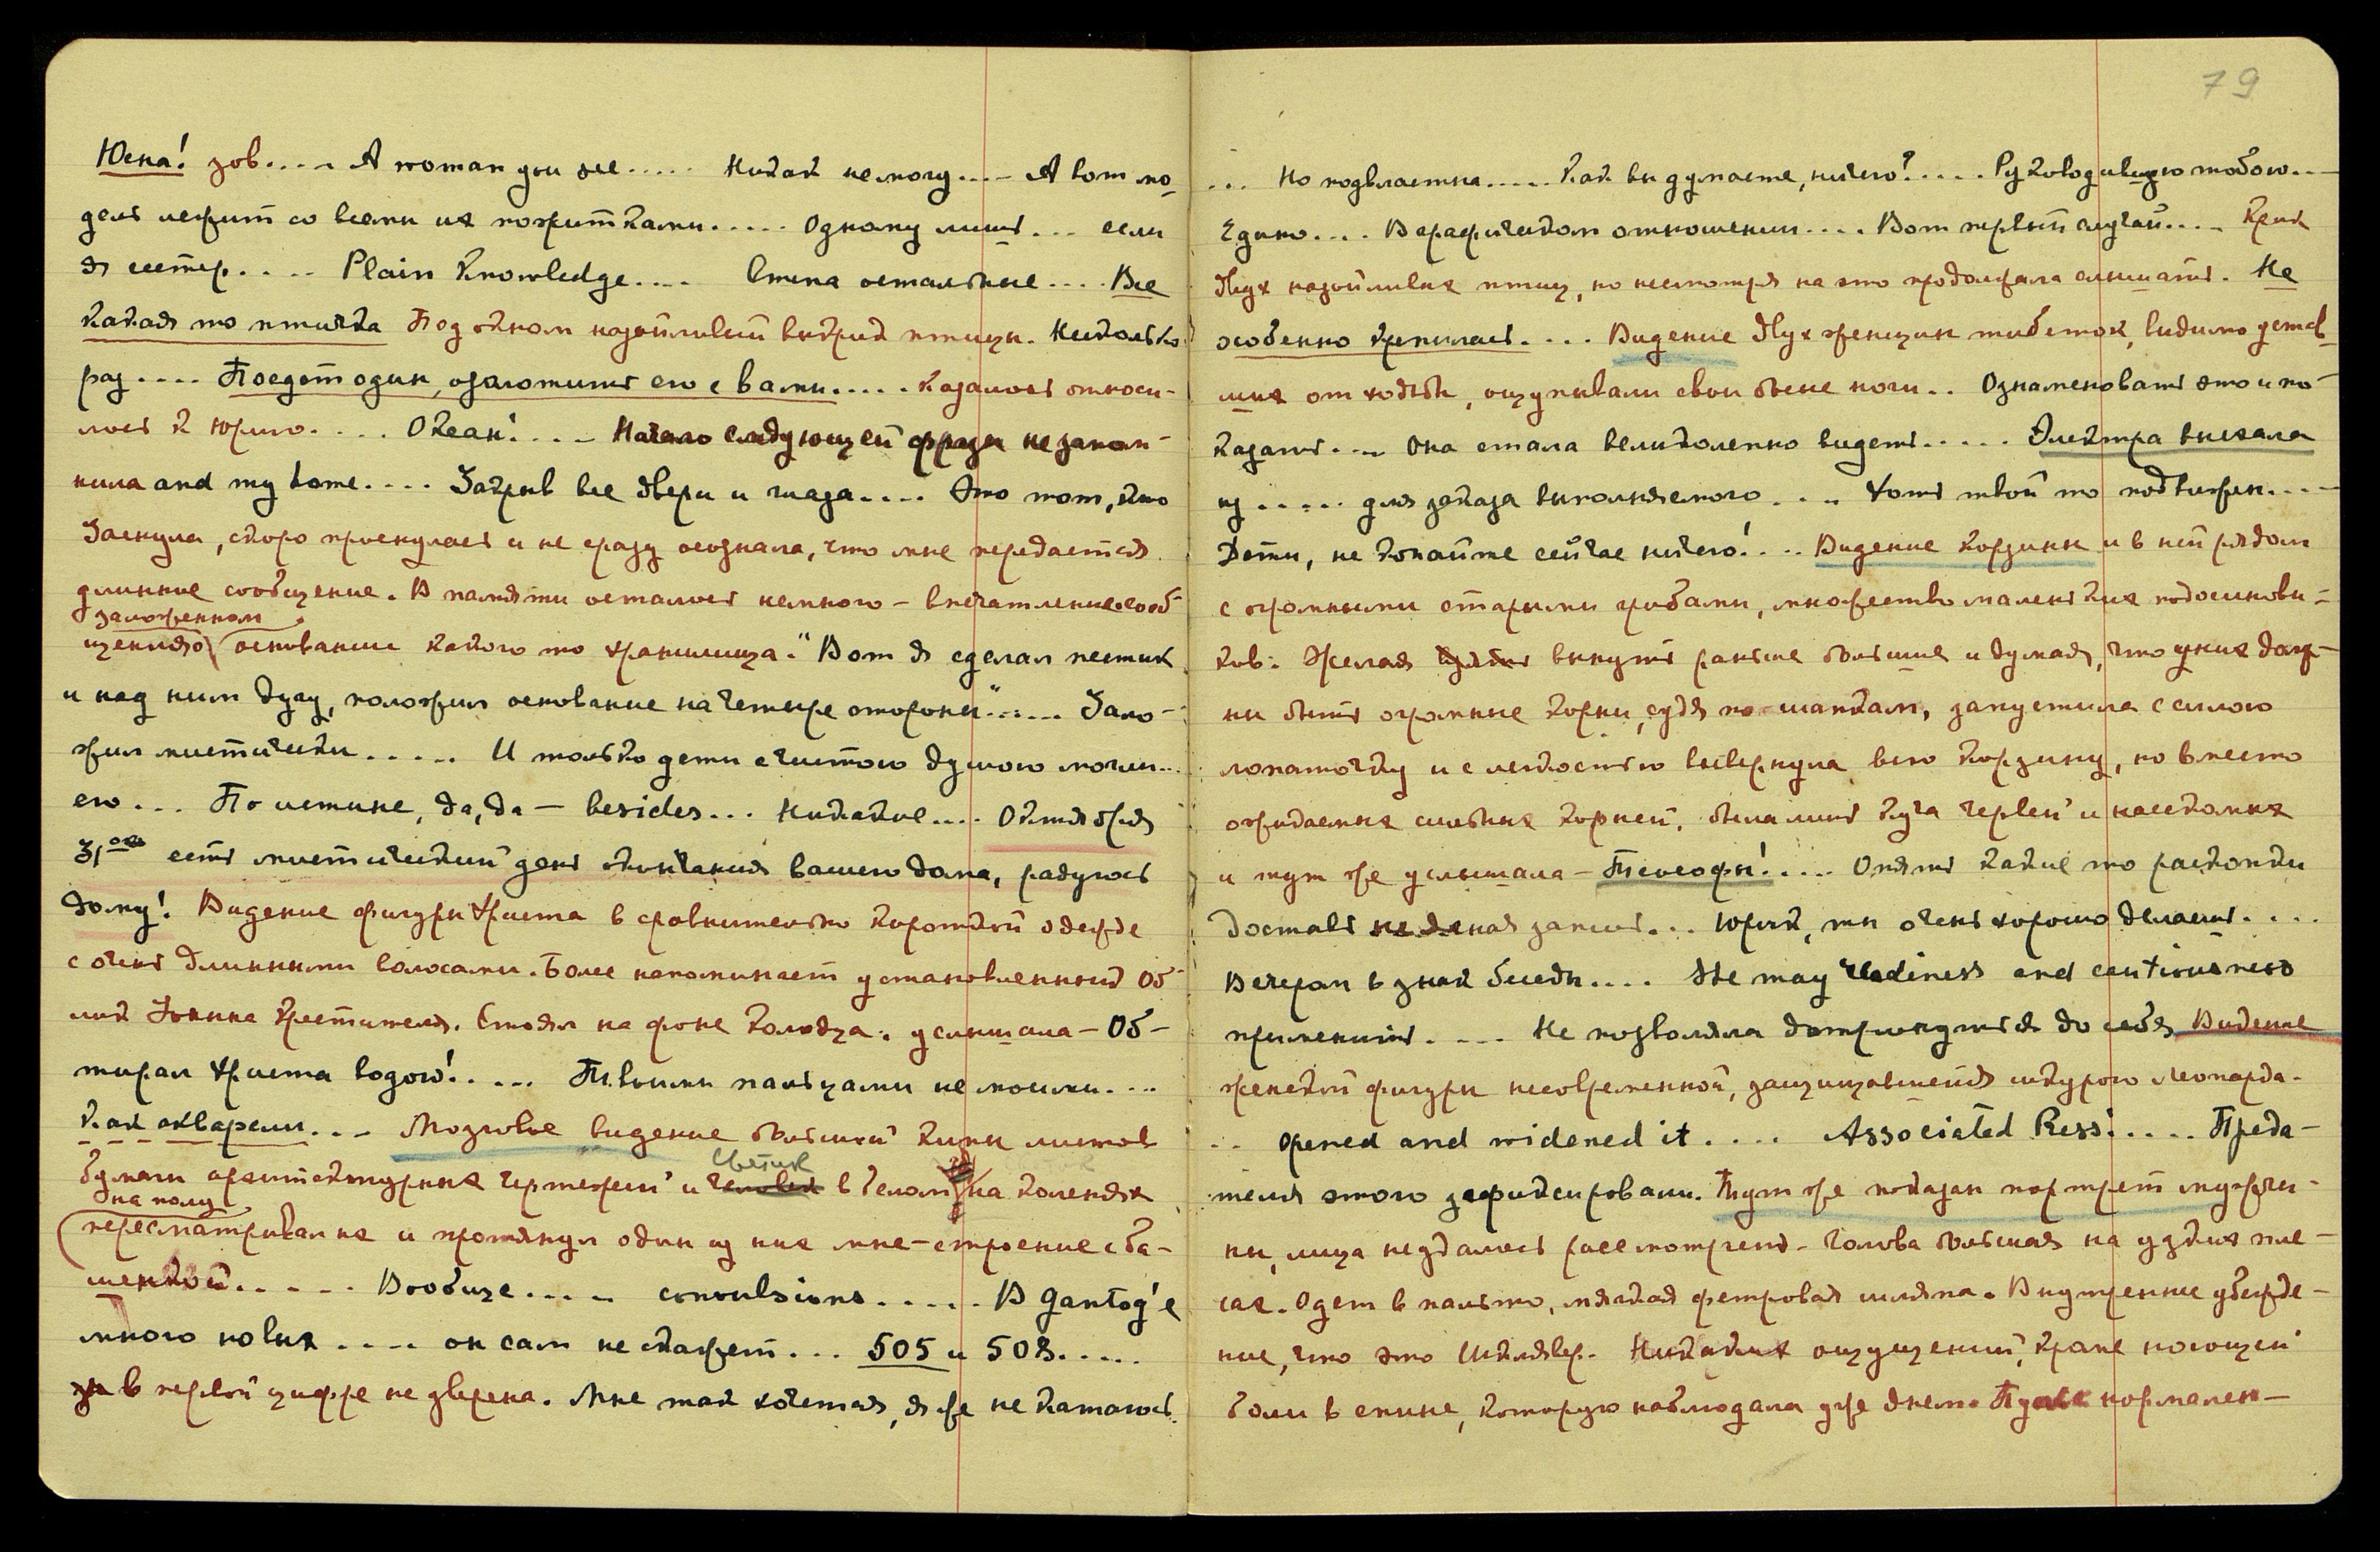 Юсна! зов.... A woman you see..... Никак не могу.... А вот мо
дель лежит со всеми их пожитками..... Одному лишь... если
я сестер..... Plain knowledge.... Стена остальные.... Все
какая то птичка Под окном назойливый выкрик птицы. Несколько
раз.... Поедет один, озаботить его с вами..... Казалось относи-
лось к Юрию.... Океан!.... Начало следующей фразы не запом-
нила and my home.... Закрыв все двери и глаза.... Это тот, кто
Заснула, скоро проснулась и не сразу осознала, что мне передается
длинные сообщение. В памяти осталось немного – впечатление сооб-
заложенном
щения о основании какого то хранилища. "Вот я сделал пестик
и над ним дугу, положил основание на четыре стороны"..... Зало-
жил мистически..... И только дети с чистою душою могли...
его... По истине, да, да – besides... Никакие.... Октября
31ого есть мистический день окончания вашего дома, радуюсь
дому! Видение фигуры Христа в сравнительно короткой одежде
с очень длинными волосами. Более напоминает установленный Об-
лик Иоанна Крестителя. Стоял на фоне колодца. услышала – Об-
тирал Христа водою!..... Пивными пальцами не мосили....
Как акварели.... Мозговое видение большой кипы листов
Светик
бумаги архитектурных чертежей и человек в белом на коленях
на полу
пересматривал их и протянул один из них мне – строение с ба-
шенкой...... Вообще..... convulsions..... В Gantog'е
много новых.... он сам не скажет... 505 и 508.....
в первой цифре не уверена. Мне так хочется, я же не катаюсь.
79
... Но подвластна..... Как вы думаете, ничего?..... Руководившую тобою....
Едино.... В графическом отношении.... Вот первый случай.... Крик
двух назойливых птиц, но несмотря на это продолжала слышать. Не
особенно крепилась.... Видение двух женщин тибеток, видимо устав-
ших от ходьбы, ощупывали свои босые ноги.. Ознаменовать это и по-
казать.... Она стала великолепно видеть..... Электра въехала
из..... для заказа выполняемого.... Хоть твой то подвижен....
Дети, не копайте сейчас ничего!.... Видение корзины и в ней рядом
с огромными старыми грибами, множество маленьких подосинови-
ков. Желая вынуть раньше большие и думая, что у них долж-
ны быть огромные корни, судя по шапкам, запустила с силою
лопаточку и с легкостью вывернула всю корзину, но вместо
ожидаемых сильных корней, была лишь куча червей и насекомых
и тут же услышала – Теософы!..... Опять какие то раскопки
достать запись... Юрик, ты очень хорошо делаешь....
Вечером в знак беседы.... He may readiness and cautiousness
применить.... Не позволяла дотронуться до себя Видение
женской фигуры несовременной, защищавшейся шкурою леопарда.
.. opened and widened it..... Associated Press!..... Преда-
теля этого зафиксировали. Тут же показан портрет мужчи-
ны, лица не удалось рассмотреть – голова большая на узких пле-
чах. Одет в пальто, мягкая фетровая шляпа. Внутренние убежде-
ние, что это Шклявер. Никаких ощущений, кроме ноющей
боли в спине, которую наблюдала уже днем. Пульс нормален –